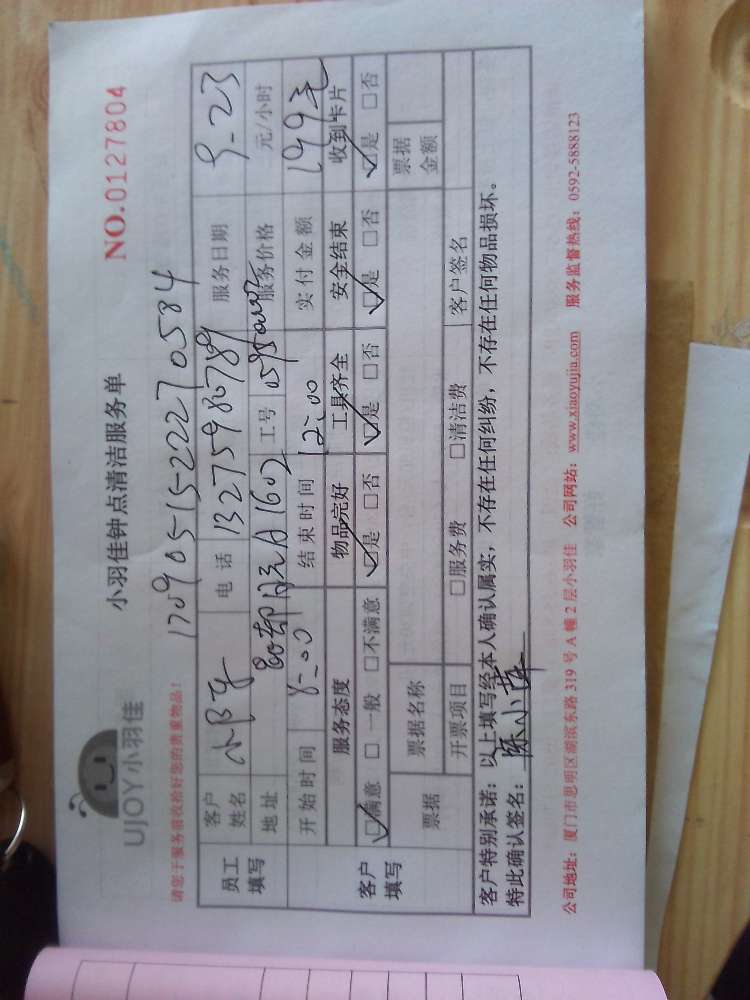 UJOY小羽佳
小羽佳钟点清洁服务单
NO.0127804
请您于服务前收拾好您的贵重物品!
1709051522270584
员工填写
客户姓名 小 电话 13275980789 服务日期 9.23
地址 A1602 工号 服务价格 元/小时
开始时间 8:00 结束时间 12:00 实付金额 199元
客户填写
服务态度 物品完好 工具齐全 安全结束 收到卡片
☑满意 □一般 □不满意 ☑是 □否 ☑是 □否 ☑是 □否 ☑是 □否
票据 票据名称 票据金额
开票项目 □服务费 □清洁费 客户签名
客户特别承诺：以上填写经本人确认属实，不存在任何纠纷，不存在任何物品损坏。
特此确认签名： 陈小萍
公司地址：厦门市思明区湖滨东路 319 号 A 幢 2 层小羽佳 公司网站：www.xiaoyujia.com 服务监督热线：0592-5888123